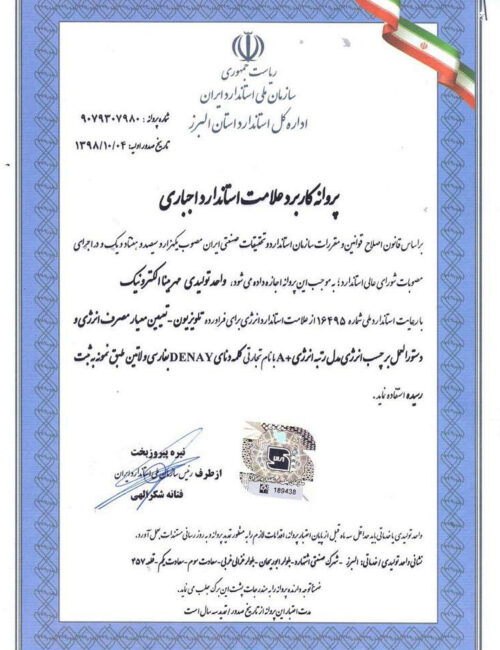 ریاست جمهوری
سازمان ملی استاندارد ایران
اداره کل استاندارد استان البرز
شماره پروانه : ۹۰۷۹۳۰۷۹۸۰
تاریخ صدور اولیه: ۱۳۹۸/۱۰/۰۴
پروانه کاربرد علامت استاندارد اجباری
براساس قانون اصلاح قوانین و مقررات سازمان استاندارد و تحقیقات صنعتی ایران مصوب یکهزار و سیصد و هفتاد و یک و در اجرای
مصوبات شورای عالی استاندارد؛ به موجب این پروانه اجازه داده می شود: واحد تولیدی مهر مینا الکترونیک
با رعایت استاندارد ملی شماره ۱۶۴۹۵ از علامت استاندارد انرژی برای فرآورده تلویزیون-تعیین معیار مصرف انرژی و
دستورالعمل برچسب انرژی مدل رتبه انرژی +A با نام تجارتی کلمه دنای DENAY بفارسی و لاتین طبق نمونه به ثبت
رسیده استفاده نماید.
نیره پیروزبخت
رئیس سازمان ملی استاندارد ایران
از طرف
فتانه شکرالهی
189438
واحد تولیدی یا خدماتی باید حداقل سه ماه قبل از پایان اعتبار پروانه، اقدامات لازم را به منظور تمدید پروانه و به روز رسانی مستندات بعمل آورد.
نشانی واحد تولیدی / خدماتی: البرز - شهرک صنعتی اشتهارد- بلوار ابوریحان- بلوار غزالی غربی- سعادت سوم - سعادت یکم- قطعه ۴۵۷
ضمنا توجه دارنده پروانه را به مندرجات پشت این برگ جلب می نماید.
مدت اعتبار این پروانه از تاریخ صدور / تمدید سه سال است